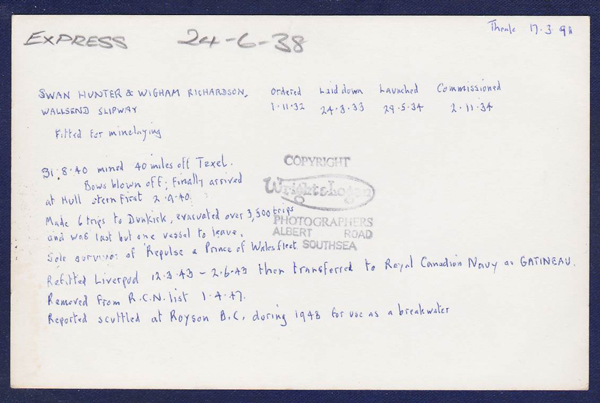 Theale 17.3.98
EXPRESS 24-6-38
SWAN HUNTER & WIGHAM RICHARDSON, Ordered Laid down Launched Commissioned
WALLSEND SLIPWAY 1.11.32 24.3.33 29.5.34 2.11.34
Fitted for minelaying
31.8.40 mined 40 miles off Texel.
Bows blown off; finally arrived
at Hull stern first 2.9.40.
Made 6 trips to Dunkirk, evacuated over 3,500 trips
and was last but one vessel to leave.
Sole survivor of Repulse & Prince of Wales fleet
Refitted Liverpool 12.2.43 - 2.6.43 then transferred to Royal Canadian Navy as GATINEAU.
Removed from R.C.N. list 1.4.47.
Reported scuttled at Royson B.C. during 1948 for use as a breakwater
COPYRIGHT
Wright & Logan
PHOTOGRAPHERS
ALBERT ROAD
SOUTHSEA